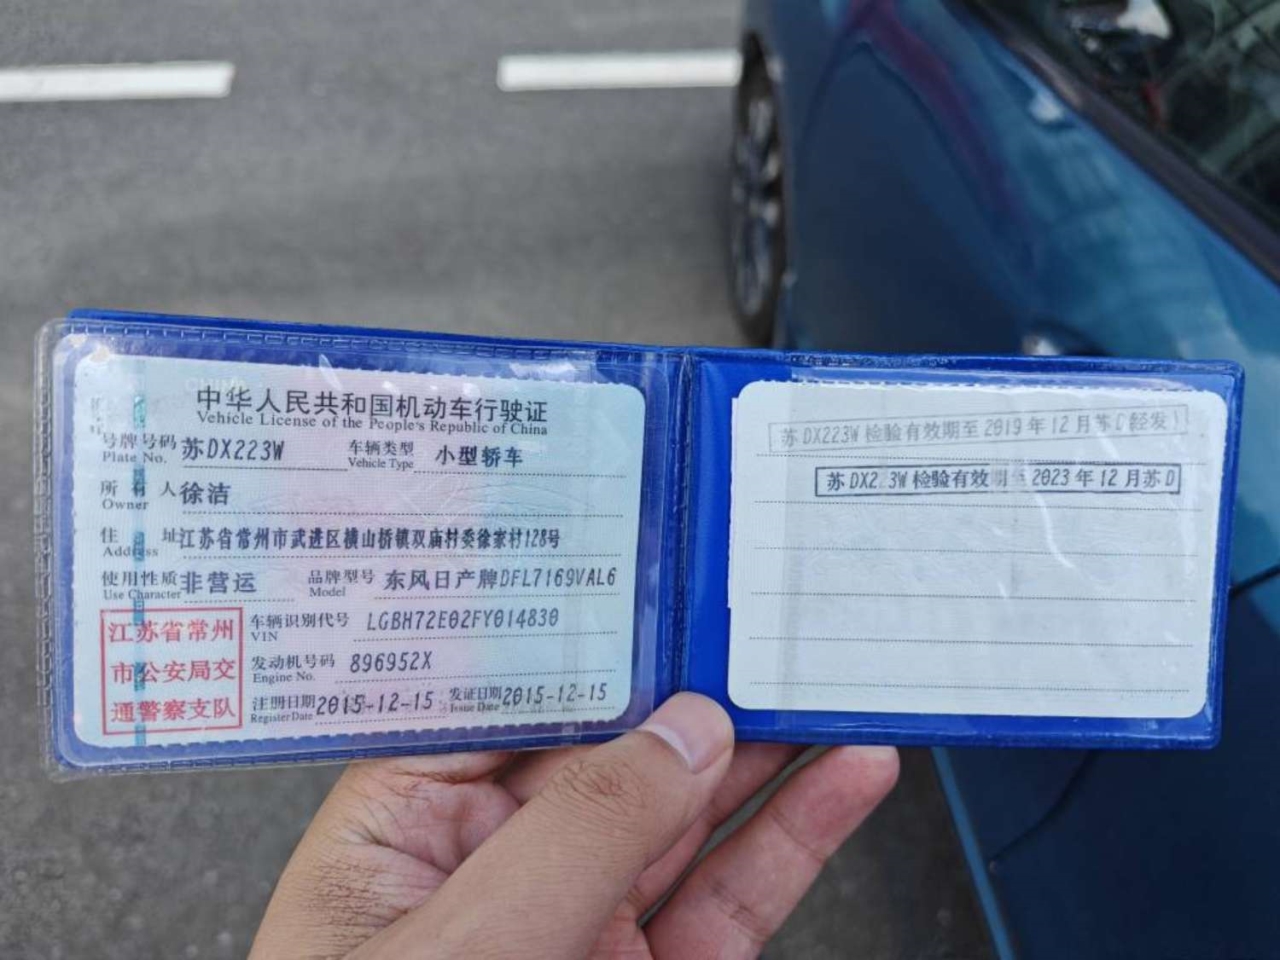 中华人民共和国机动车行驶证
Vehicle License of the People's Republic of China
号牌号码 苏DX223W 车辆类型 小型轿车
Plate No. Vehicle Type
所有人 徐洁
Owner
住址 江苏省常州市武进区横山桥镇双庙村委徐家村128号
Address
使用性质 非营运 品牌型号 东风日产牌DFL7169VAL6
Use Character Model
江苏省常州
市公安局交
通警察支队
车辆识别代号 LGBH72E02FY014830
VIN
发动机号码 896952X
Engine No.
注册日期 2015-12-15 发证日期 2015-12-15
Register Date Issue Date
苏DX223W 检验有效期至 2019 年 12 月苏D(经发)
苏DX2 3W 检验有效期至 2023 年 12 月苏D